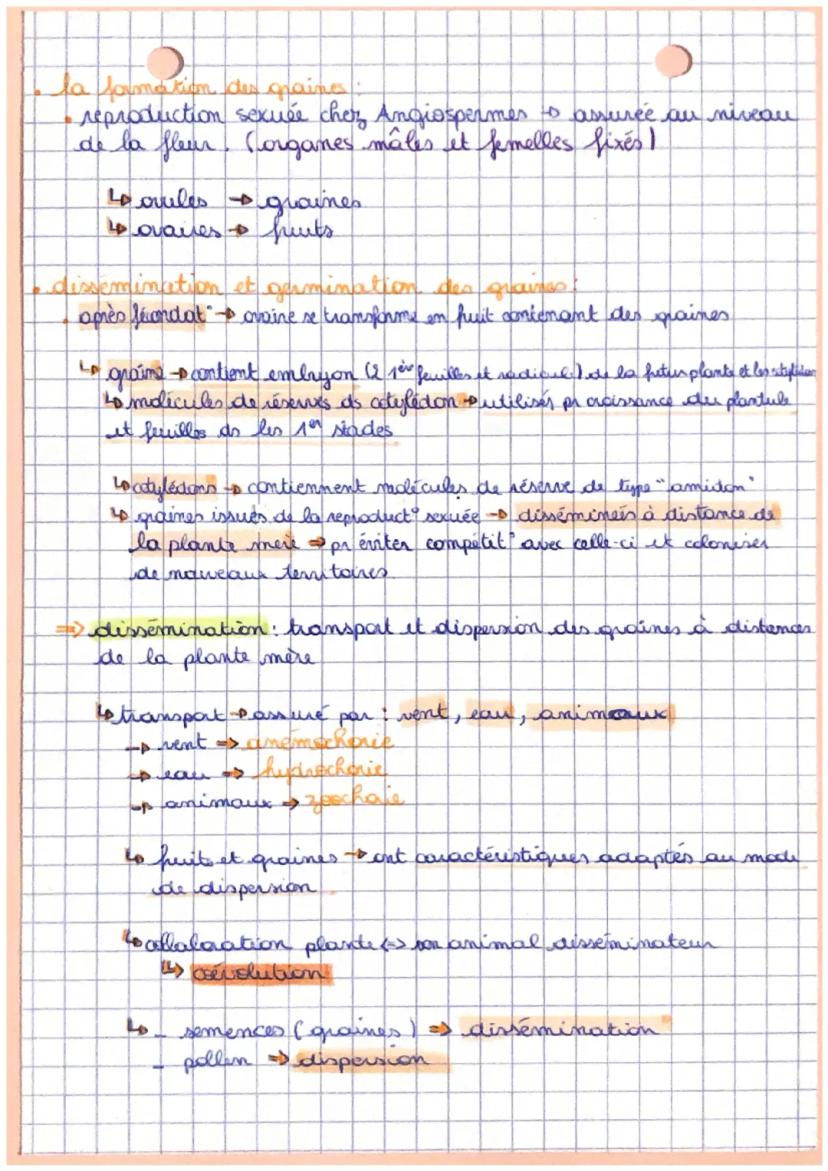 • la formation des graines :
• reproduction sexuée chez Angiospermes → assurée au niveau
de la fleur. (organes mâles et femelles fixés)
↳ ovules → graines
↳ ovaires → fruits
• dissémination et germination des graines :
• après fécondat° → ovaire se transforme en fruit contenant des graines
↳ graine → contient embryon (2 1ère feuilles et radicule) de la futur plante et les cotylédon
↳ molécules de réserves ds cotylédon → utilisés pr croissance du plantule
et feuilles ds les 1er stades
↳ cotylédons → contiennent molécules de réserve de type "amidon"
↳ graines issues de la reproduct° sexuée → disséminées à distance de
la plante mère ⇒ pr éviter compétit° avec celle-ci et coloniser
de nouveaux territoires
⇒ dissémination : transport et dispersion des graines à distances
de la plante mère
↳ transport → assuré par : vent, eau, animaux
→ vent ⇒ anémochorie
→ eau ⇒ hydrochorie
→ animaux → zoochorie
↳ fruits et graines → ont caractéristiques adaptés au mode
de dispersion
↳ collaboration plante <=> son animal disséminateur
↳ coévolution
↳ - semences (graines) ⇒ dissémination
- pollen ⇒ dispersion